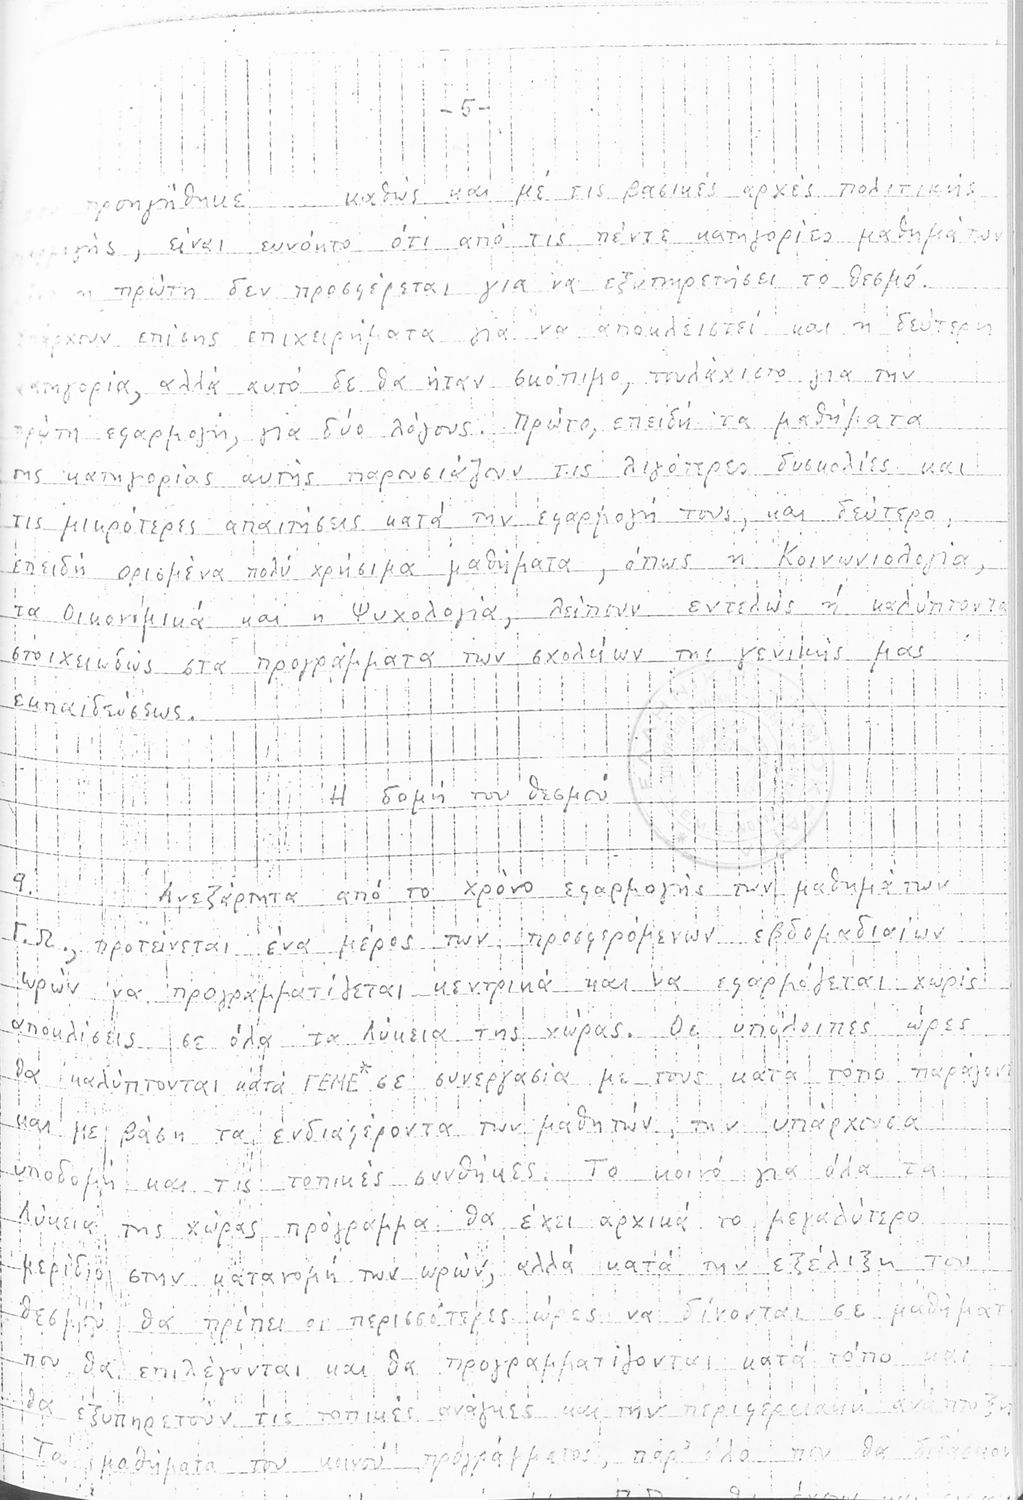 -5-
προηγήθηκε καθώς και μέ τις βασικές αρχές πολιτικής
, είναι ευνόητο ότι από τις πέντε κατηγορίες μαθημάτων
η πρώτη δεν προσφέρεται για να εξυπηρετήσει το θεσμό.
επίσης επιχειρήματα για να αποκλειστεί και η δεύτερη
κατηγορία, αλλά αυτό δε θα ήταν σκόπιμο, τουλάχιστο για την
πρώτη εφαρμογή, για δύο λόγους. Πρώτο, επειδή τα μαθήματα
της κατηγορίας αυτής παρουσιάζουν τις λιγότερες δυσκολίες και
τις μικρότερες απαιτήσεις κατά την εφαρμογή τους, και δεύτερο,
επειδή ορισμένα πολύ χρήσιμα μαθήματα, όπως η Κοινωνιολογία,
τα Οικονομικά και η Ψυχολογία, λείπουν εντελώς ή καλύπτοντα
στοιχειωδώς στα προγράμματα των σχολείων της γενικής μας
εκπαιδεύσεως.
Η δομή του θεσμού
9. Ανεξάρτητα από το χρόνο εφαρμογής των μαθημάτων
Γ.Π., προτείνεται ένα μέρος των προσφερόμενων εβδομαδιαίων
ωρών να προγραμματίζεται κεντρικά και να εφαρμόζεται χωρίς
αποκλίσεις σε όλα τα Λύκεια της χώρας. Οι υπόλοιπες ώρες
θα καλύπτονται κατά ΓΕΜΕ* σε συνεργασία με τους κατά τόπο παράγοντ
και με βάση τα ενδιαφέροντα των μαθητών, την υπάρχουσα
υποδομή και τις τοπικές συνθήκες. Το κοινό για όλα τα
Λύκεια της χώρας πρόγραμμα θα έχει αρχικά το μεγαλύτερο
μερίδιο στην κατανομή των ωρών, αλλά κατά την εξέλιξη του
θεσμού θα πρέπει οι περισσότερες ώρες να δίνονται σε μαθήματ
που θα επιλέγονται και θα προγραμματίζονται κατά τόπο και
θα εξυπηρετούν τις τοπικές ανάγκες και την περιφερειακή ανάπτυξη
Τα μαθήματα του κοινού προγράμματος, παρ' όλο που θα